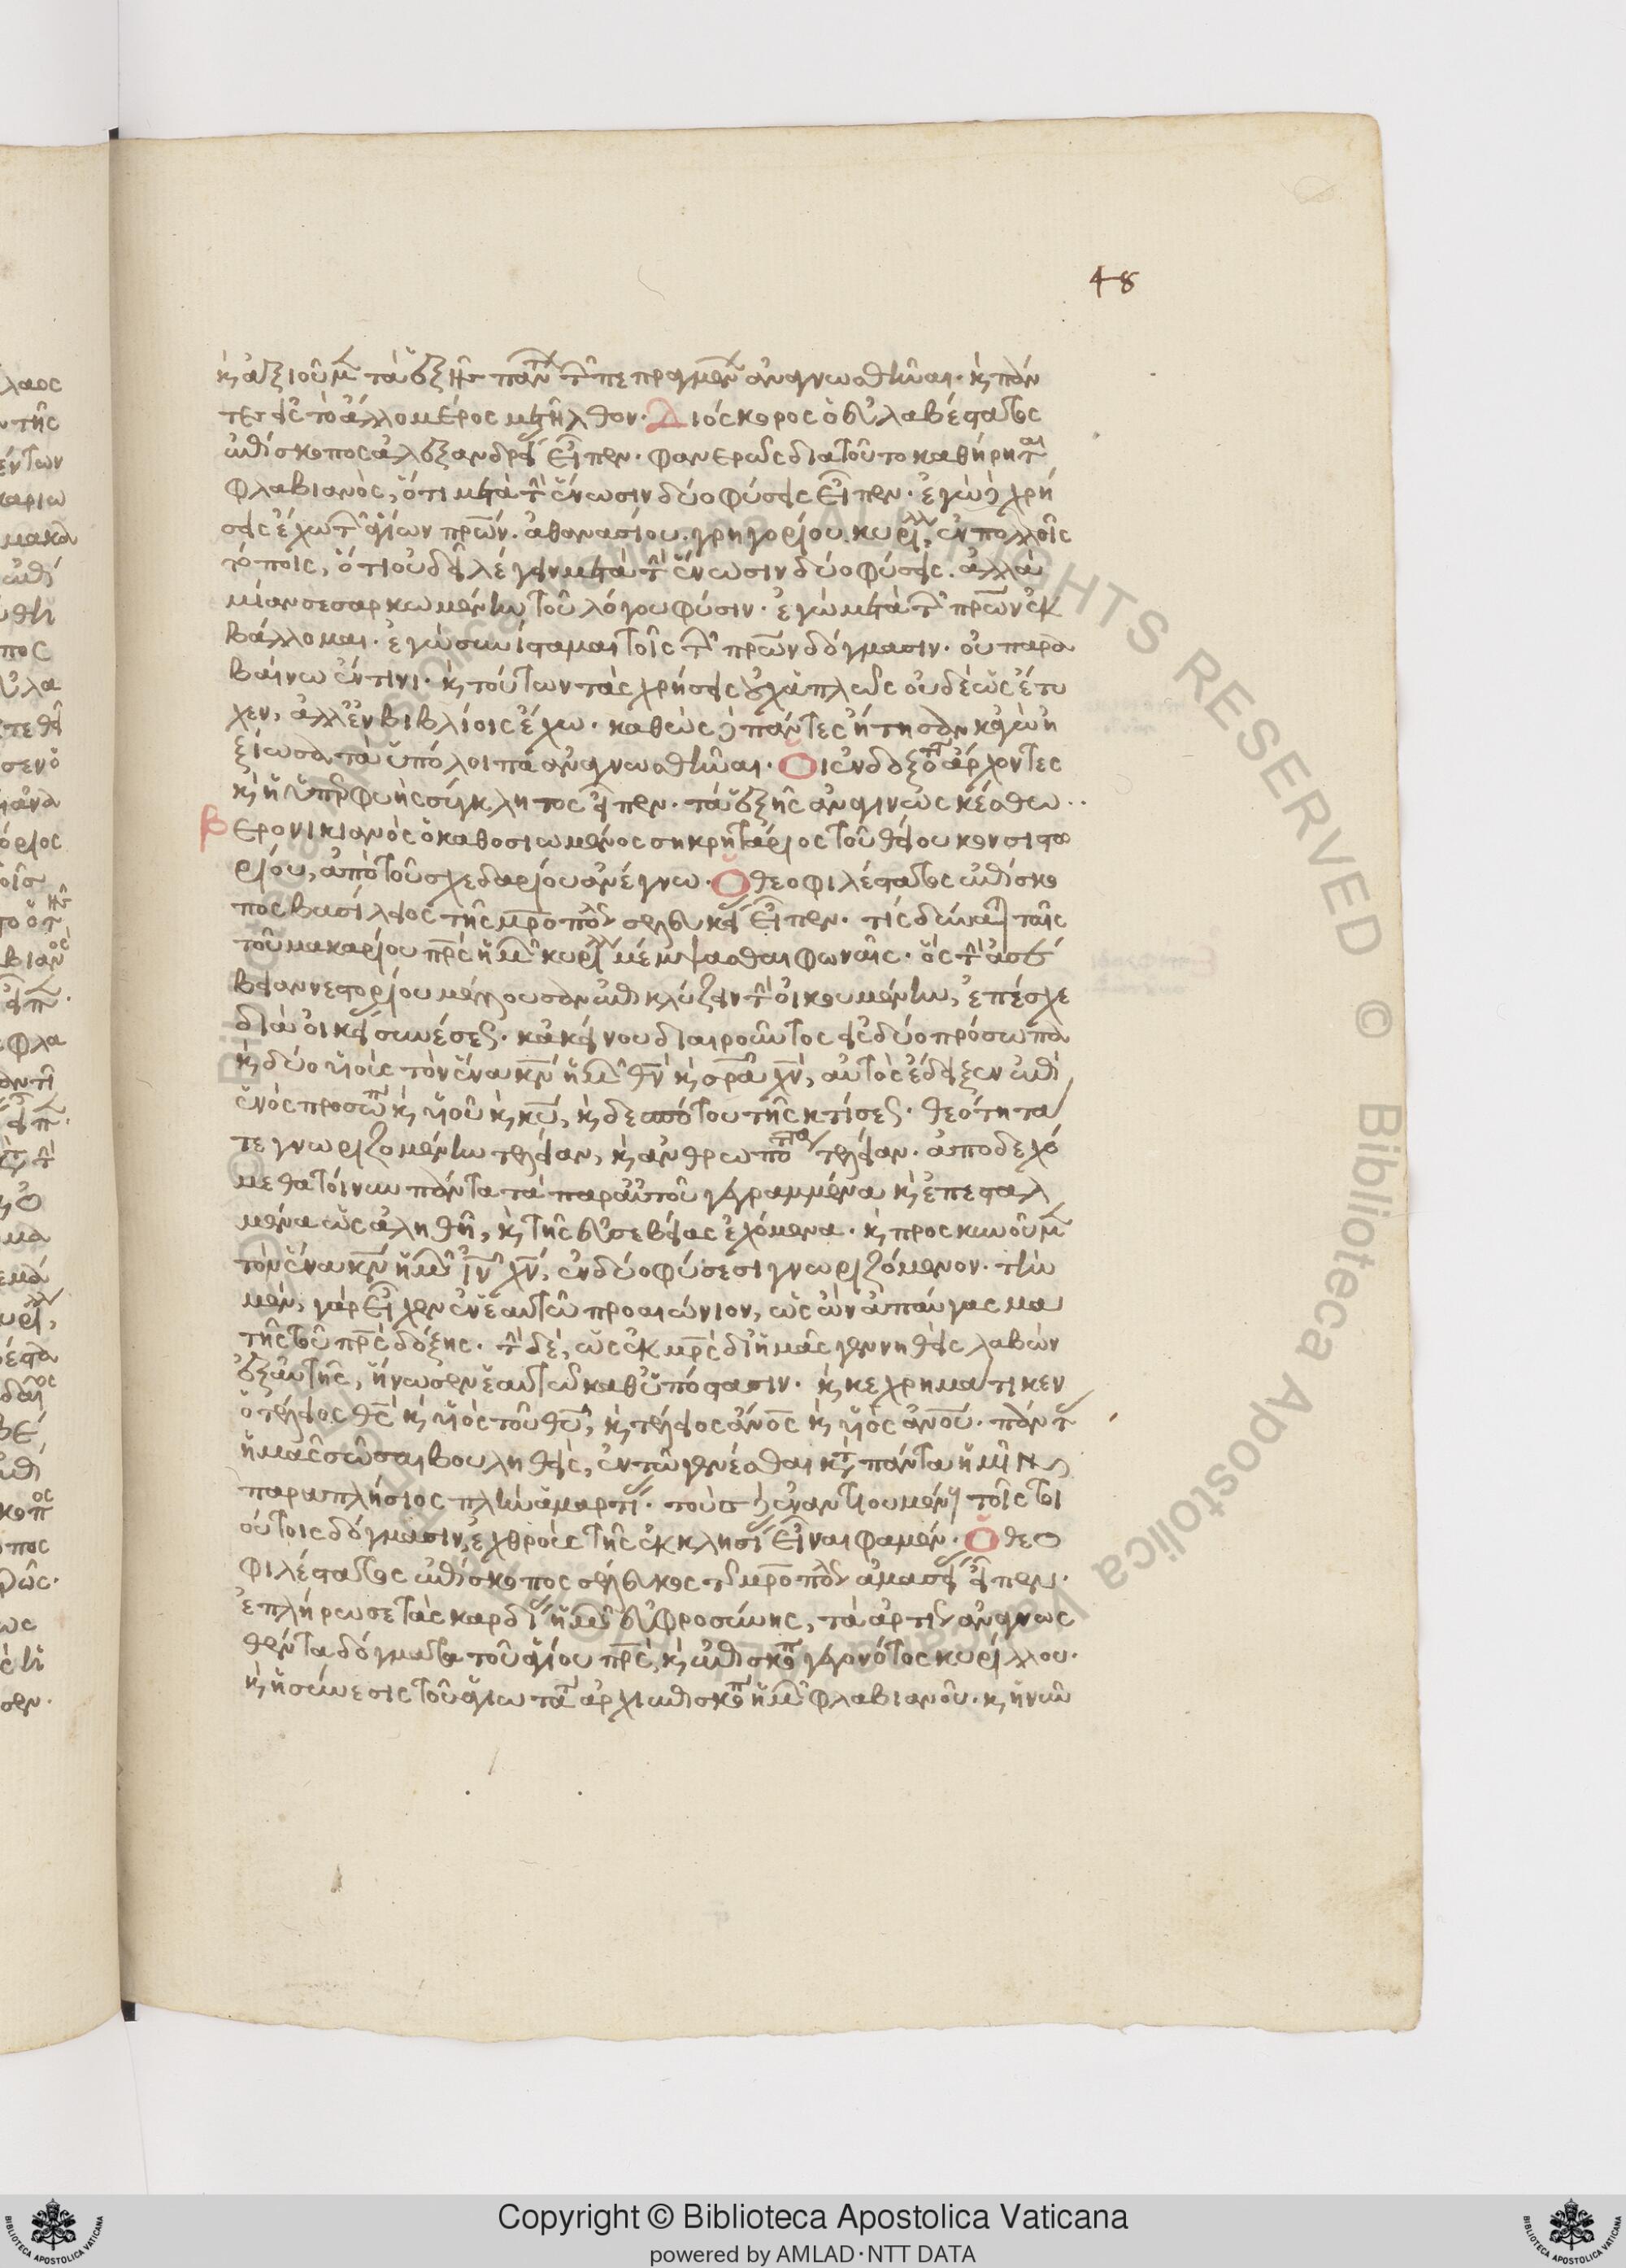 48
κ, ἀξιοῦμ τὰ ἑξῆς πάντ τ πεπραγμέν ἀναγνωσθῆναι. κ, πάν
τες εἰς τὸ ἄλλο μέρος μετῆλθον. Διόσκορος ὁ εὐλαβέστατος
ἐπίσκοπος ἀλεξανδρεί εἶπεν. φανερῶς διατοῦτο καθήρηται
φλαβιανὸς, ὅτι μετὰ τ ἕνωσιν δύο φύσεις εἶπεν. ἐγὼ δὲ χρή
σεις ἔχω τ ἁγίων πρων. ἀθανασίου. γρηγορίου. κυρίλλ, ἐν πολλοῖς
τόποις, ὅτι οὐ δεῖ λέγειν μετὰ τ ἕνωσιν δύο φύσεις. ἀλλὰ
μίαν σεσαρκωμένην τοῦ λόγου φύσιν. ἐγὼ μετὰ τ πρων ἐκ
βάλλομαι. ἐγὼ συνίσταμαι τοῖς τ πρων δόγμασιν. οὐ παρα
βαίνω ἔν τινι. κ, τούτων τὰς χρήσεις οὐχ ἁπλῶς οὐδὲ ὡς ἔτυ
χεν, ἀλλ' ἐν βιβλίοις ἔχω. καθὼς δὲ πάντες ἤτησαν κἀγὼ ἠ
ξίωσα τὰ ὑπόλοιπα ἀναγνωσθῆναι. Οἱ ἐνδοξότ ἄρχοντες
κ, ἡ ὑπερφυὴς σύγκλητος εἶπεν. τὰ ἑξῆς ἀναγινωσκέσθω..
Βερονικιανὸς ὁ καθοσιωμένος σηκρητάριος τοῦ θείου κονσιστω
ρίου, ἀπὸ τοῦ σχεδαρίου ἀνέγνω. Ὁ θεοφιλέστατος ἐπίσκο
πος βασίλειος τῆς μροπόλ σελευκεί εἶπεν. τίς δύναται ταῖς
τοῦ μακαρίου πρς ἡμ κυρίλλ μέμψασθαι φωναῖς. ὅς τ ἀσέ
βειαν νεστορίου μέλλουσαν ἐπικλύζειν τ οἰκουμένην, ἐπέσχε
διὰ οἰκεί συνέσεως. κἀκείνου διαιροῦντος εἰς δύο πρόσωπα
κ, δύο υἱοὺς τὸν ἕνα κν ἡμ θν κ, σρα χν, αὐτὸς ἔδειξεν ἐπὶ
ἑνὸς προσώπ κ, υἱοῦ κ, κυ, κ, δεσπότου τῆς κτίσεως. θεότητα
τε γνωριζομένην τελείαν, κ, ἀνθρωπότητα τελείαν. ἀποδεχό
μεθα τοίνυν πάντα τὰ παρ' αὐτοῦ γεγραμμένα κ, ἐπεσταλ
μένα ὡς ἀληθῆ, κ, τῆς εὐσεβείας ἐχόμενα. κ, προσκυνοῦμ
τὸν ἕνα κν ἡμ ιν χν, ἐν δύο φύσεσι γνωριζόμενον. τὴν
μὲν, γὰρ εἶχεν ἐν ἑαυτῶ προαιώνιον, ὡς ὢν ἀπαύγασμα
τῆς τοῦ πρς δόξης. τ δὲ, ὡς ἐκ μρς δι' ἡμᾶς γεννηθεὶς λαβὼν
ἐξ αὐτῆς, ἥνωσεν ἑαυτῶ καθ' ὑπόστασιν. κ, κεχρημάτικεν
ὁ τέλειος θς κ, υἱὸς τοῦ θυ, κ, τέλειος ἀνος κ, υἱὸς ἀνου. πάντ
ἡμᾶς σῶσαι βουληθεὶς, ἐν τῶ γενέσθαι κατ πάντα ἡμῖν
παραπλήσιος πλὴν ἁμαρτί. τοὺς δὲ ἐναντιουμέν τοῖς τοι
ούτοις δόγμασιν, ἐχθροὺς τῆς ἐκκλησί εἶναι φαμέν. Ὁ θεο
φιλέστατος ἐπίσκοπος σέλευκος τ μροπόλ ἀμασεί εἶπεν.
ἐπλήρωσε τὰς καρδί ἡμ εὐφροσύνης, τὰ ἀρτί ἀναγνωσ
θέντα δόγματα τοῦ ἁγίου πρς, κ, ἐπισκόπ γεγονότος κυρίλλου.
κ, ἡ σύνεσις τοῦ ἁγιωτάτ ἀρχιεπισκόπ ἡμ φλαβιανοῦ. κ, ἡ νῦν
Copyright © Biblioteca Apostolica Vaticana
powered by AMLAD·NTT DATA